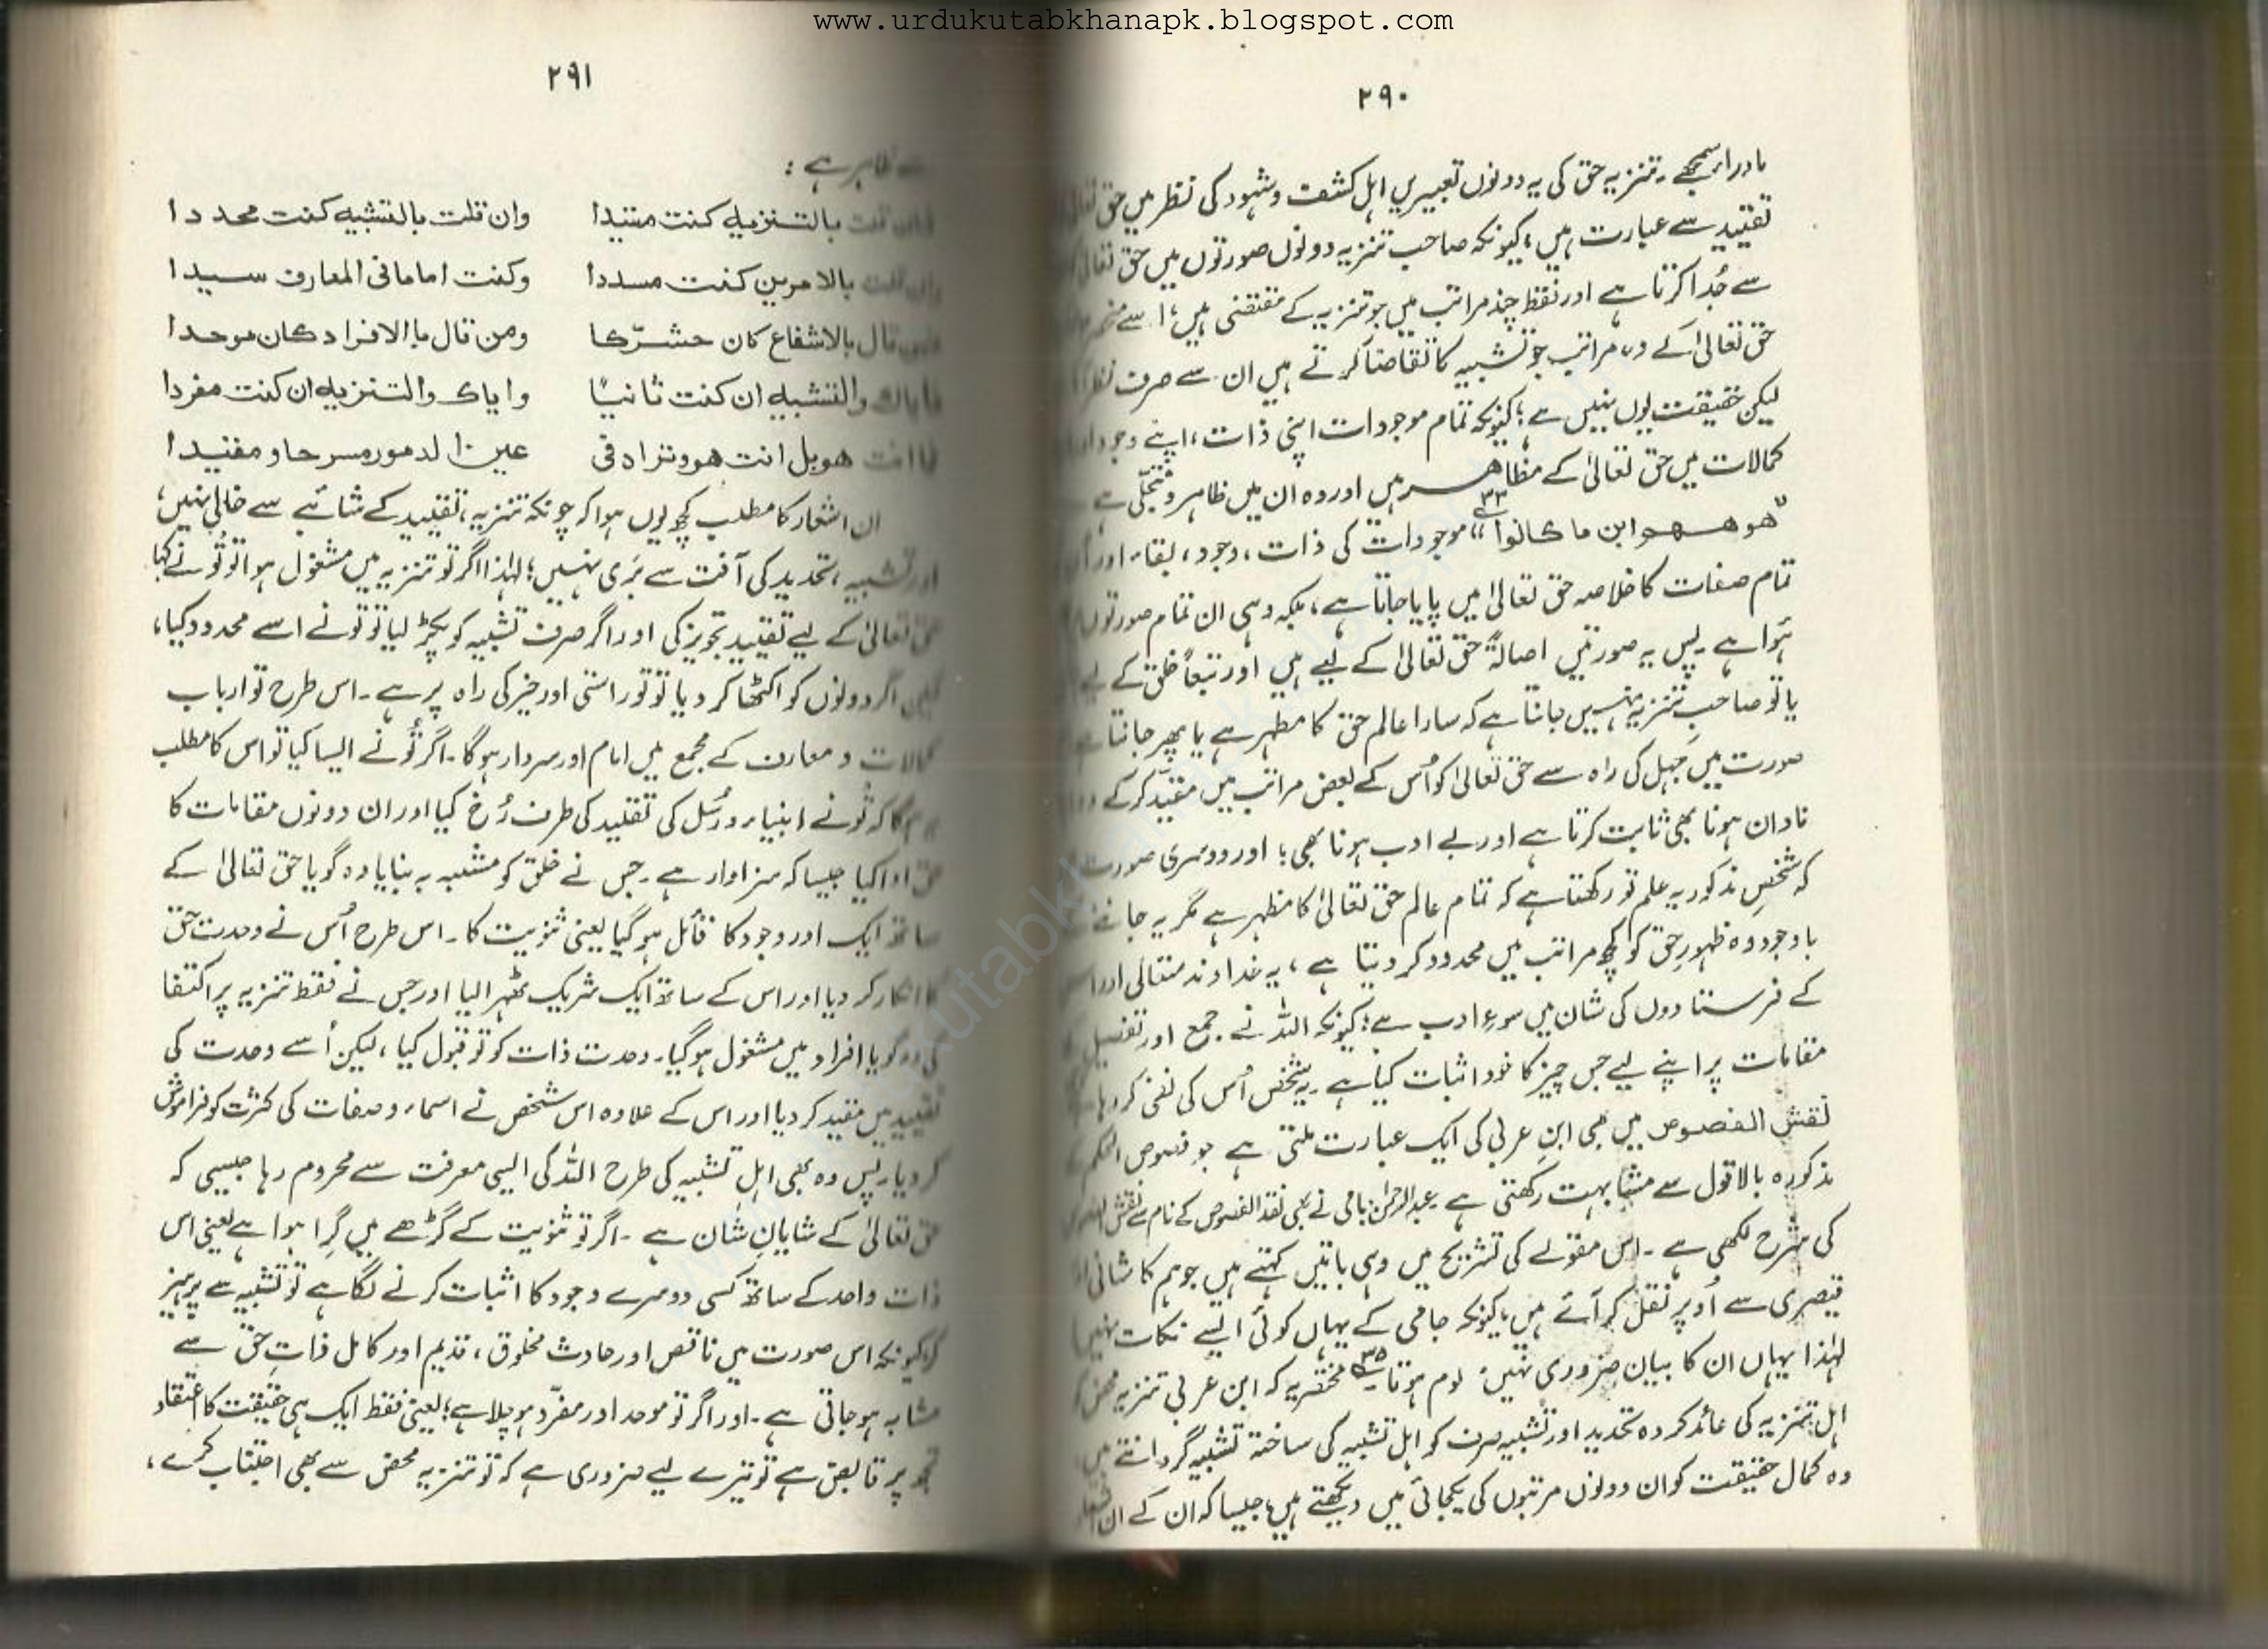 www.urdukutabkhanapk.blogspot.com
۲۹۰
ماوراء سمجھے ۔ تنزیہ حق کی یہ دونوں تعبیریں اہل کشف و شہود کی نظر میں حق تعالیٰ
تقیید سے عبارت ہیں؛ کیونکہ صاحب تنزیہ دونوں صورتوں میں حق تعالیٰ
سے جُدا کرتا ہے اور فقط چند مراتب میں جو تنزیہ کے مقتضی ہیں، اسے
حق تعالیٰ کے وہ مراتب جو تشبیہ کا تقاضا کرتے ہیں ان سے صرف نظر
لیکن حقیقت یوں نہیں ہے؛ کیونکہ تمام موجودات اپنی ذات، اپنے وجود اور
کمالات میں حق تعالیٰ کے مظاہر ہیں اور وہ ان میں ظاہر و متجلّی ہے
"ھو معھم این ما کانوا"۳۳ موجودات کی ذات، وجود، بقاء اور ان
تمام صفات کا خلاصہ حق تعالیٰ میں پایا جاتا ہے، بلکہ وہی ان تمام صورتوں
ہُوا ہے ۔ پس یہ صورتیں اصالۃً حق تعالیٰ کے لیے ہیں اور تبعاً خلق کے لیے
یا تو صاحبِ تنزیہ نہیں جانتا ہے کہ سارا عالم حق کا مظہر ہے یا پھر جانتا ہے
صورت میں جہل کی راہ سے حق تعالیٰ کو اُس کے بعض مراتب میں مقیّد کرکے
نادان ہونا بھی ثابت کرتا ہے اور بے ادب ہونا بھی؛ اور دوسری صورت
کہ شخصِ مذکور یہ علم تو رکھتا ہے کہ تمام عالم حق تعالیٰ کا مظہر ہے مگر یہ جاننے
باوجود وہ ظہورِ حق کو کچھ مراتب میں محدود کر دیتا ہے، یہ خداوند متعالی اور اس
کے فرستادوں کی شان میں سوءِ ادب ہے؛ کیونکہ اللہ نے جمع اور تفصیل
مقامات پر اپنے لیے جس چیز کا خود اثبات کیا ہے ۔ یہ شخص اُس کی نفی کر رہا
نقش الفصوص میں بھی ابنِ عربی کی ایک عبارت ملتی ہے جو فصوص الحکم
مذکورہ بالا قول سے مشابہت رکھتی ہے ۔ عبدالرحمٰن جامی نے بھی نقد الفصوص کے نام سے نقش الفصوص
کی شرح لکھی ہے ۔ اس مقولے کی تشریح میں وہی باتیں کہتے ہیں جو ہم کاشانی اور
قیصری سے اُوپر نقل کر آئے ہیں، کیونکہ جامی کے یہاں کوئی ایسے نکات نہیں
لہٰذا یہاں ان کا بیان ضروری نہیں لوم ہوتا۳۵ مختصر یہ کہ ابن عربی تنزیہ محض کو
اہل تنزیہ کی عائد کردہ تحدید اور تشبیہ صرف کو اہل تشبیہ کی ساختہ تشبیہ گردانتے ہیں
وہ کمال حقیقت کو ان دونوں مرتبوں کی یکجائی میں دیکھتے ہیں؛ جیسا کہ ان کے ان اشعار
۲۹۱
سے ظاہر ہے :
فان قلت بالتنزیه کنت مقیدا وان قلت بالتشبیه کنت محددا
وان قلت بالامرین کنت مسددا وکنت اماما فی المعارف سیدا
فمن قال بالاشفاع کان مشرّکا ومن قال باالافراد کان موحدا
فایاك والتشبیه ان کنت ثانیاً وایاک والتنزیه ان کنت مفردا
فما انت هو بل انت هو وتراه فی عین الامور مسرحا و مقیدا
ان اشعار کا مطلب کچھ یوں ہوا کہ چونکہ تنزیہ، تقیید کے شائبے سے خالی نہیں،
اور تشبیہ، تحدید کی آفت سے بَری نہیں؛ لہٰذا اگر تو تنزیہ میں مشغول ہوا تو تُو نے گویا
حق تعالیٰ کے لیے تقیید تجویز کی اور اگر صرف تشبیہ کو پکڑ لیا تو تو نے اسے محدود کیا،
لیکن اگر دونوں کو اکٹھا کر دیا تو تو راستی اور خیر کی راہ پر ہے ۔ اس طرح تو ارباب
کمالات و معارف کے مجمع میں امام اور سردار ہوگا ۔ اگر تُو نے ایسا کیا تو اس کا مطلب
ہوگا کہ تُو نے انبیاء و رُسُل کی تقلید کی طرف رُخ کیا اور ان دونوں مقامات کا
حق ادا کیا جیسا کہ سزاوار ہے ۔ جس نے خلق کو مشبہ بہ بنایا وہ گویا حق تعالیٰ کے
ساتھ ایک اور وجود کا قائل ہو گیا یعنی ثنویت کا ۔ اس طرح اُس نے وحدت حق
کا انکار کر دیا اور اس کے ساتھ ایک شریک ٹھہرا لیا اور جس نے فقط تنزیہ پر اکتفا
کی وہ گویا افراد میں مشغول ہو گیا ۔ وحدت ذات کو تو قبول کیا، لیکن اُسے وحدت کی
تقیید میں مقید کر دیا اور اس کے علاوہ اس شخص نے اسماء و صفات کی کثرت کو فراموش
کر دیا ۔ پس وہ بھی اہل تشبیہ کی طرح اللہ کی ایسی معرفت سے محروم رہا جیسی کہ
حق تعالیٰ کے شایانِ شان ہے ۔ اگر تو ثنویت کے گڑھے میں گِرا ہوا ہے یعنی اس
ذات واحد کے ساتھ کسی دوسرے وجود کا اثبات کرنے لگا ہے تو تشبیہ سے پرہیز
کر کیونکہ اس صورت میں ناقص اور حادث مخلوق، قدیم اور کامل ذاتِ حق سے
مشابہ ہو جاتی ہے ۔ اور اگر تو موحد اور مفرّد ہو چلا ہے؛ یعنی فقط ایک ہی حقیقت کا اعتقاد
تجھ پر قابض ہے تو تیرے لیے ضروری ہے کہ تو تنزیہ محض سے بھی اجتناب کرے،